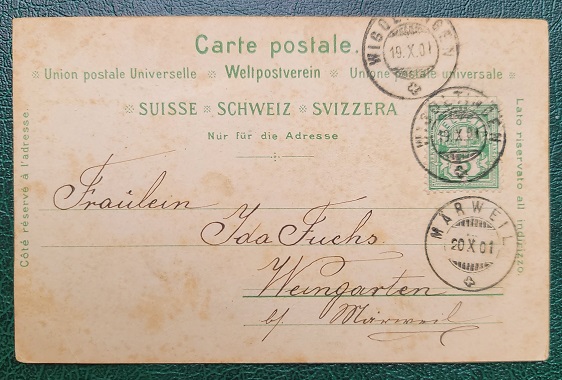 Carte postale.
Union postale Universelle Weltpostverein Unione postale universale
SUISSE SCHWEIZ SVIZZERA
Nur für die Adresse
Côté réservé à l'adresse.
Lato riservato all indirizzo.
WIGOLTINGEN
19.X.01
WIGOLTINGEN
19.X.01
MÄRWEIL
20 X 01
Fräulein
Ida Fuchs.
Weingarten
b/ Märweil